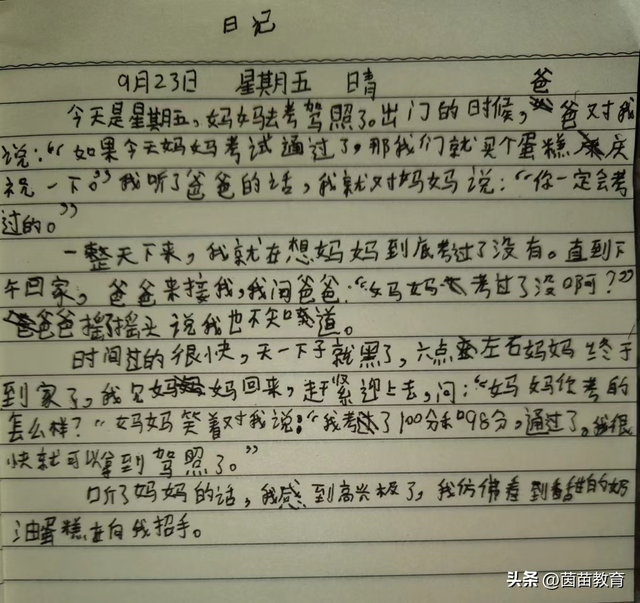 日记
9月23日 星期五 晴
今天是星期五,妈妈去考驾照了。出门的时候,爸爸对我
说:“如果今天妈妈考试通过了,那我们就买个蛋糕庆
祝一下。”我听了爸爸的话,我就对妈妈说:“你一定会考
过的。”
一整天下来,我就在想妈妈到底考过了没有。直到下
午回家,爸爸来接我,我问爸爸:“妈妈考过了没啊?”
爸爸摇摇头说我也不知道。
时间过的很快,天一下子就黑了,六点左右妈妈终于
到家了,我见妈妈回来,赶紧迎上去,问:“妈妈你考的
怎么样?”妈妈笑着对我说:“我考了100分和98分,通过了,我很
快就可以拿到驾照了。”
听了妈妈的话,我感到高兴极了,我仿佛看到香甜的奶
油蛋糕在向我招手。
头条@茵苗教育